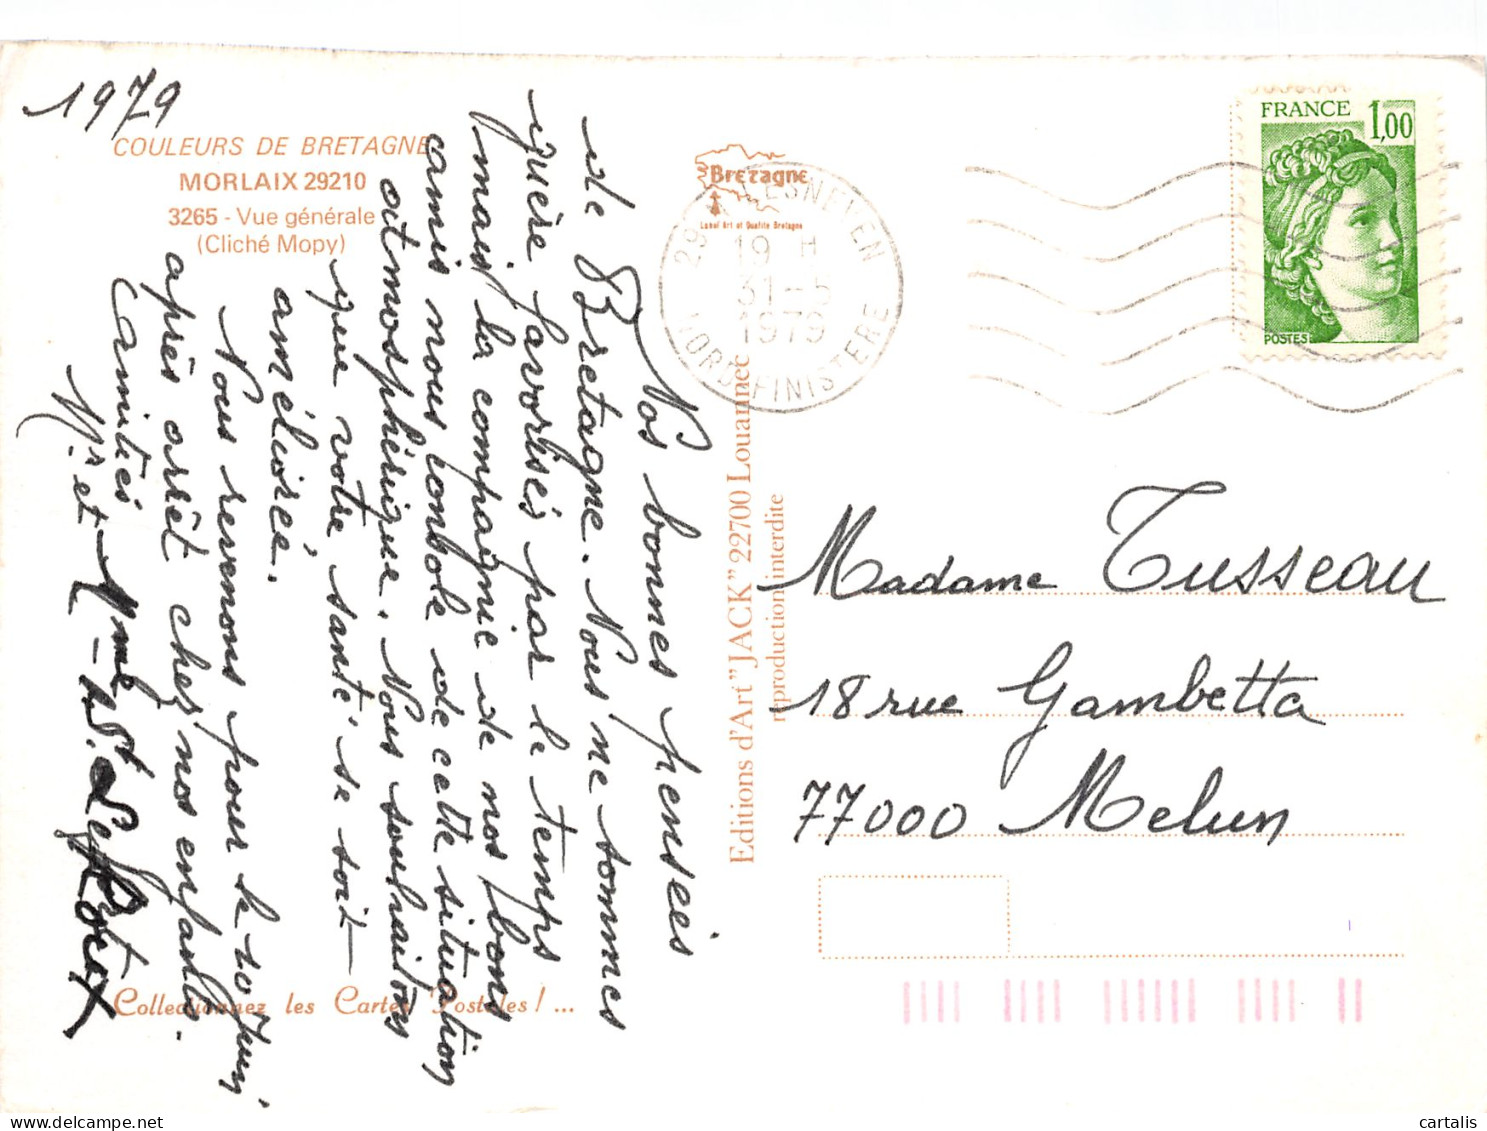 1979
COULEURS DE BRETAGNE
MORLAIX 29210
3265 - Vue générale
(Cliché Mopy)
Nos bonnes pensées
de Bretagne. Nous ne sommes
guère favorisés par le temps
mais la compagnie de nos bons
amis nous console de cette situation
atmosphérique. Nous souhaitons
que votre santé se soit
améliorée.
Nous revenons pour le 10 Juin
après arrêt chez nos enfants.
Amitiés
Mr et Mme
Collectionnez les Cartes Postales ! ...
Editions d'Art "JACK" 22700 Louannec
reproduction interdite
Bretagne
Label Art et Qualité Bretagne
29 LESNEVEN
19 H
31-5
1979
NORD FINISTERE
FRANCE 1,00
POSTES
Madame Tusseau
18 rue Gambetta
77000 Melun
cartalis